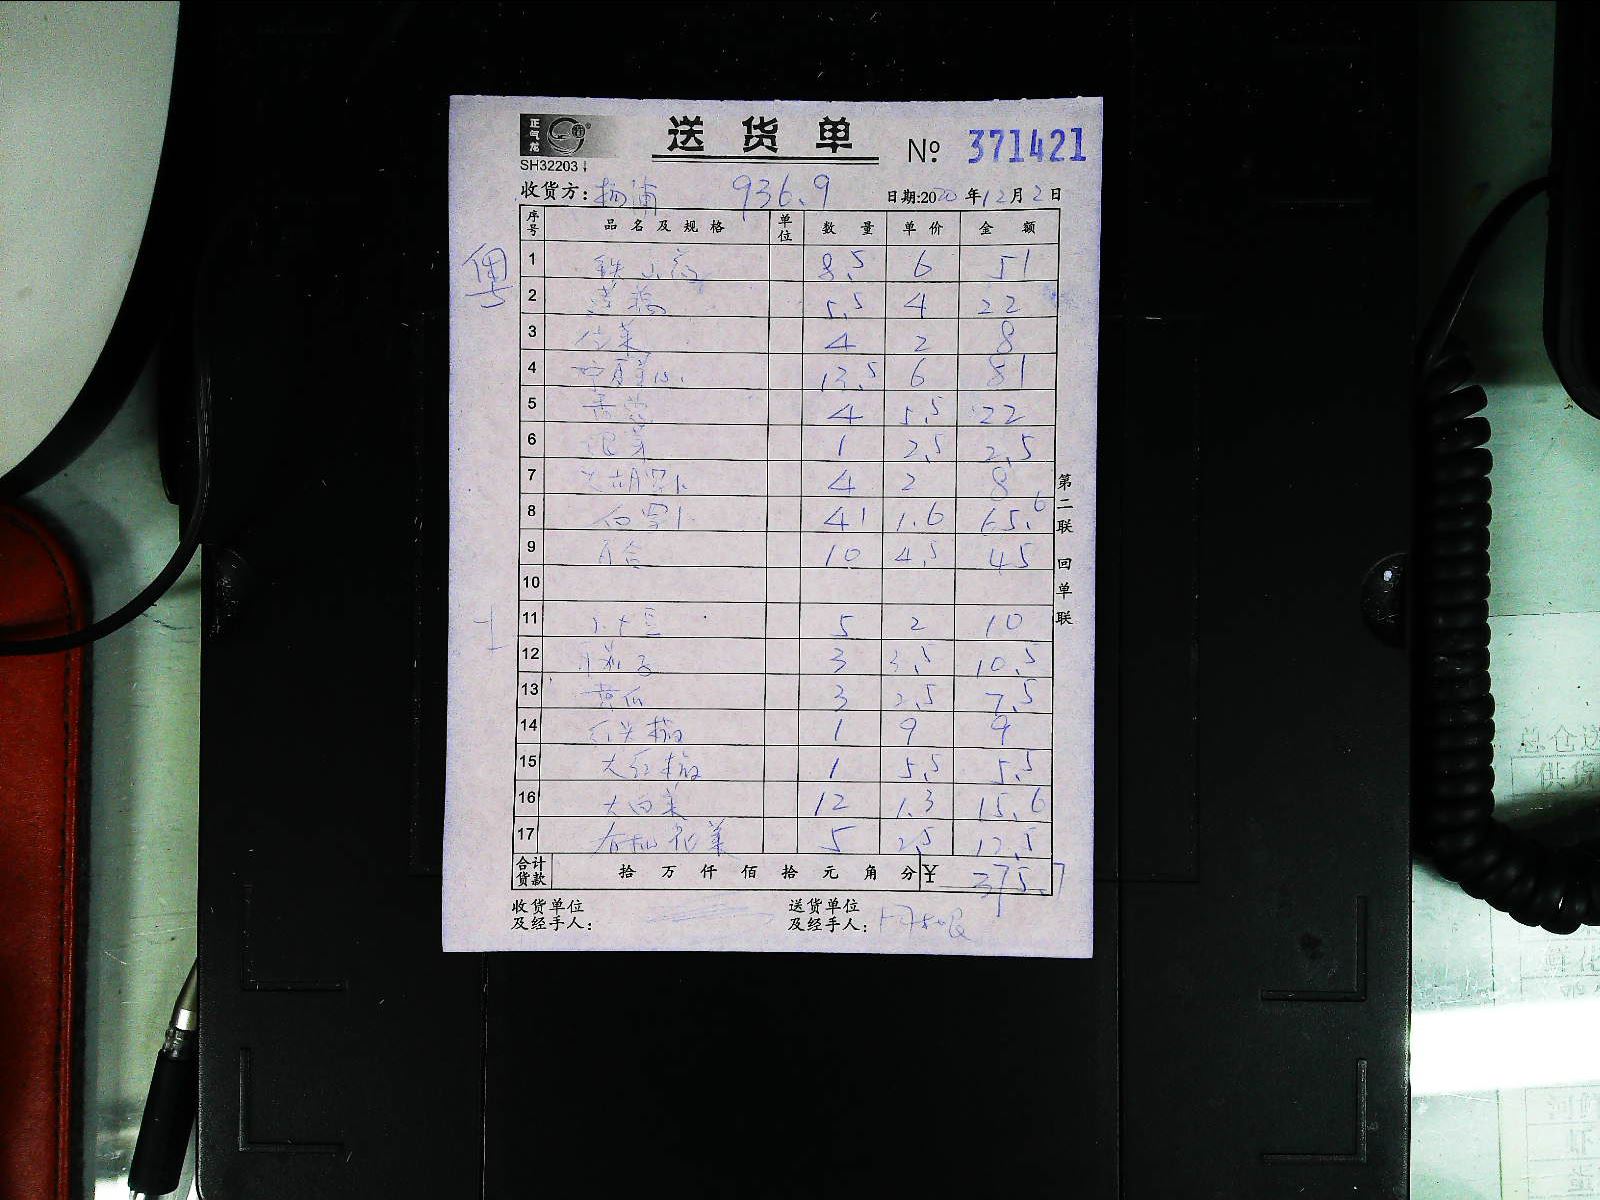 正气龙
送货单
№ 371421
SH32203
收货方: 杨浦 936.9 日期:2020年12月2日
序号 品名及规格 单位 数量 单价 金额
粤
1 铁山药 8.5 6 51
2 5.5 4 22
3 4 2 8
4 13.5 6 81
5 香葱 4 5.5 22
6 1 2.5 2.5
7 胡罗卜 4 2 8
8 白罗卜 41 1.6 65.6
9 百合 10 4.5 45
10
11 5 2 10
12 茄子 3 3.5 10.5
13 黄瓜 3 2.5 7.5
14 1 9 9
15 大红椒 1 5.5 5.5
16 大白菜 12 1.3 15.6
17 有机花菜 5 2.5 12.5
合计货款 拾万仟佰拾元角分 ¥ 375.7
收货单位及经手人:
送货单位及经手人:
第二联 回单联
总仓送
供货